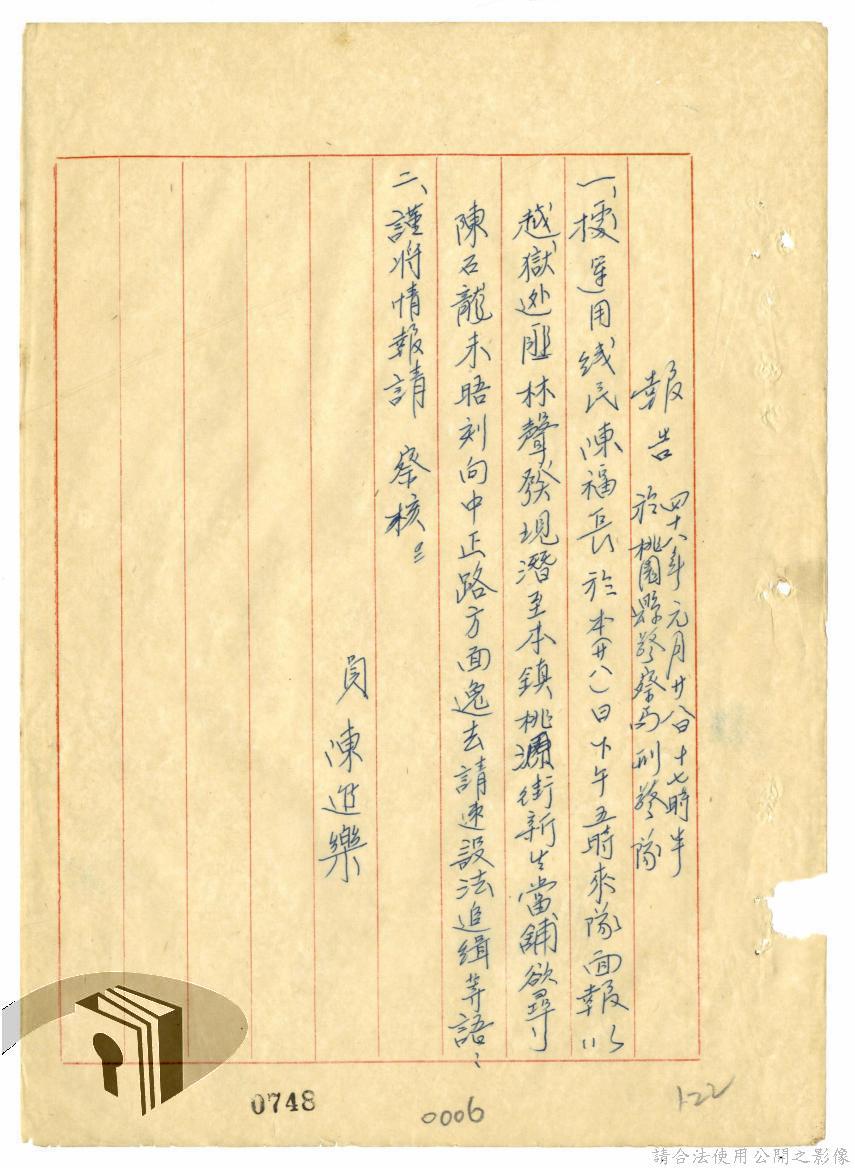 報告 四十八年元月廿八日十七時半
於桃園縣警察局刑警隊
一、據運用线民陳福長於本廿八日下午五時來隊面報以
越獄逃匪林聲發現潛至本鎮桃源街新生當舖欲尋
陳石龍未晤刻向中正路方面逸去請速設法追緝等語
二、謹將情報請 察核
員 陳進樂
0748
0006
122
請合法使用公開之影像